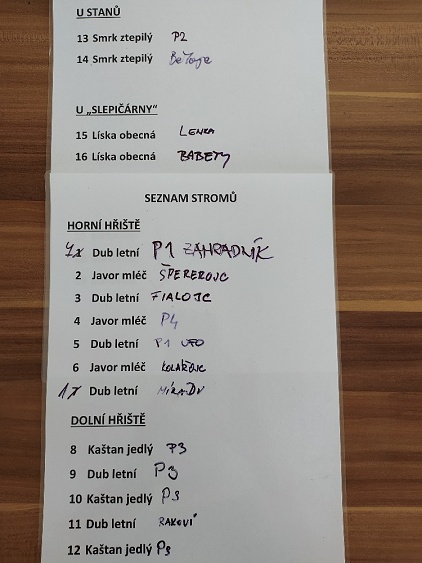 U STANŮ
13 Smrk ztepilý P2
14 Smrk ztepilý
U „SLEPIČÁRNY"
15 Líska obecná LENKA
16 Líska obecná BABETY
SEZNAM STROMŮ
HORNÍ HŘIŠTĚ
Dub letní P1 ZAHRADNÍK
2 Javor mléč ŠPEREROJC
3 Dub letní FIALOJC
4 Javor mléč P4
5 Dub letní P1 UFO
6 Javor mléč KOLAŘOJC
Dub letní
DOLNÍ HŘIŠTĚ
8 Kaštan jedlý P3
9 Dub letní P3
10 Kaštan jedlý P3
11 Dub letní
12 Kaštan jedlý P3